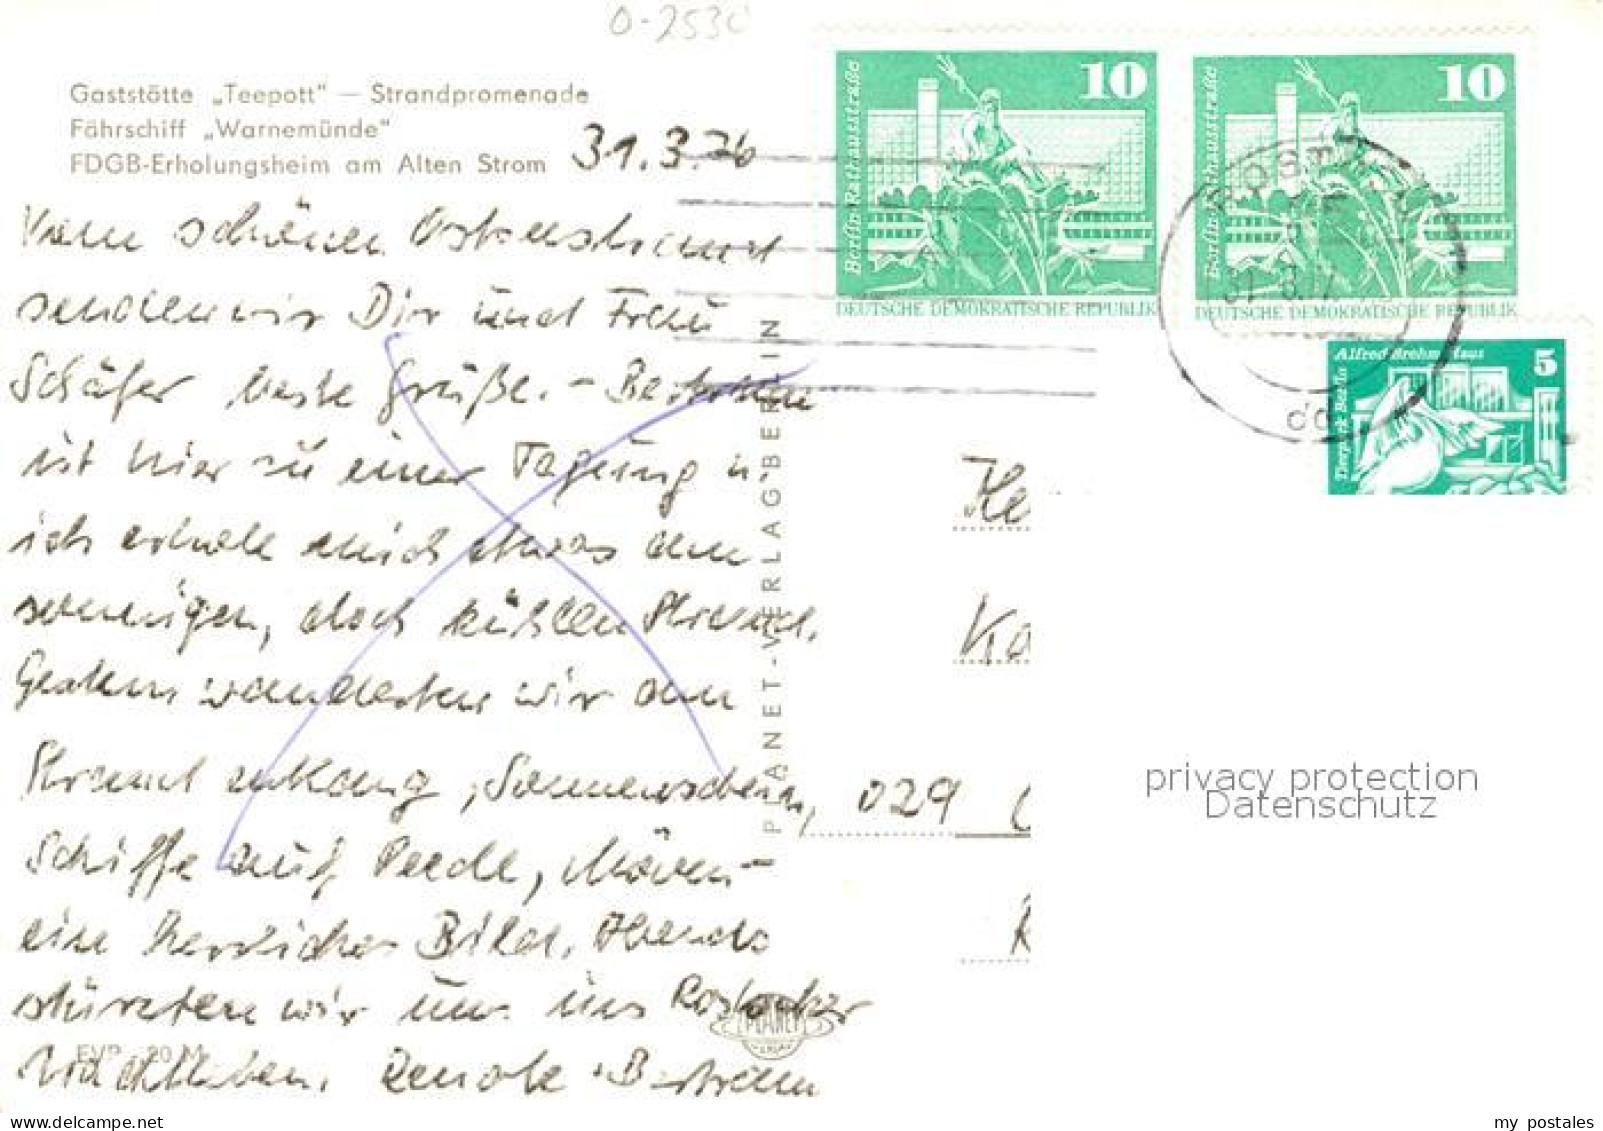 O-2530
Gaststätte „Teepott" — Strandpromenade
Fährschiff „Warnemünde"
FDGB-Erholungsheim am Alten Strom
31.3.76
Vom schönen Ostseestrand
senden wir Dir und Frau
Schäfer beste Grüße. – Bertram
ist hier zu einer Tagung u.
ich erhole mich etwas am
sonnigen, doch kühlen Strand.
Gestern wanderten wir am
Strand entlang, Sonnenschein,
Schiffe auf Reede, Möven –
ein herrliches Bild. Abends
stürzten wir uns ins Rostocker
Nachtleben. Renate + Bertram
EVP -,20 M
PLANET-VERLAG BERLIN
PLANET
VERLAG
10
Berlin, Rathausstraße
DEUTSCHE DEMOKRATISCHE REPUBLIK
10
Berlin, Rathausstraße
DEUTSCHE DEMOKRATISCHE REPUBLIK
Alfred-Brehm-Haus
5
Tierpark Berlin
He
Ka
029
privacy protection
Datenschutz
my postales